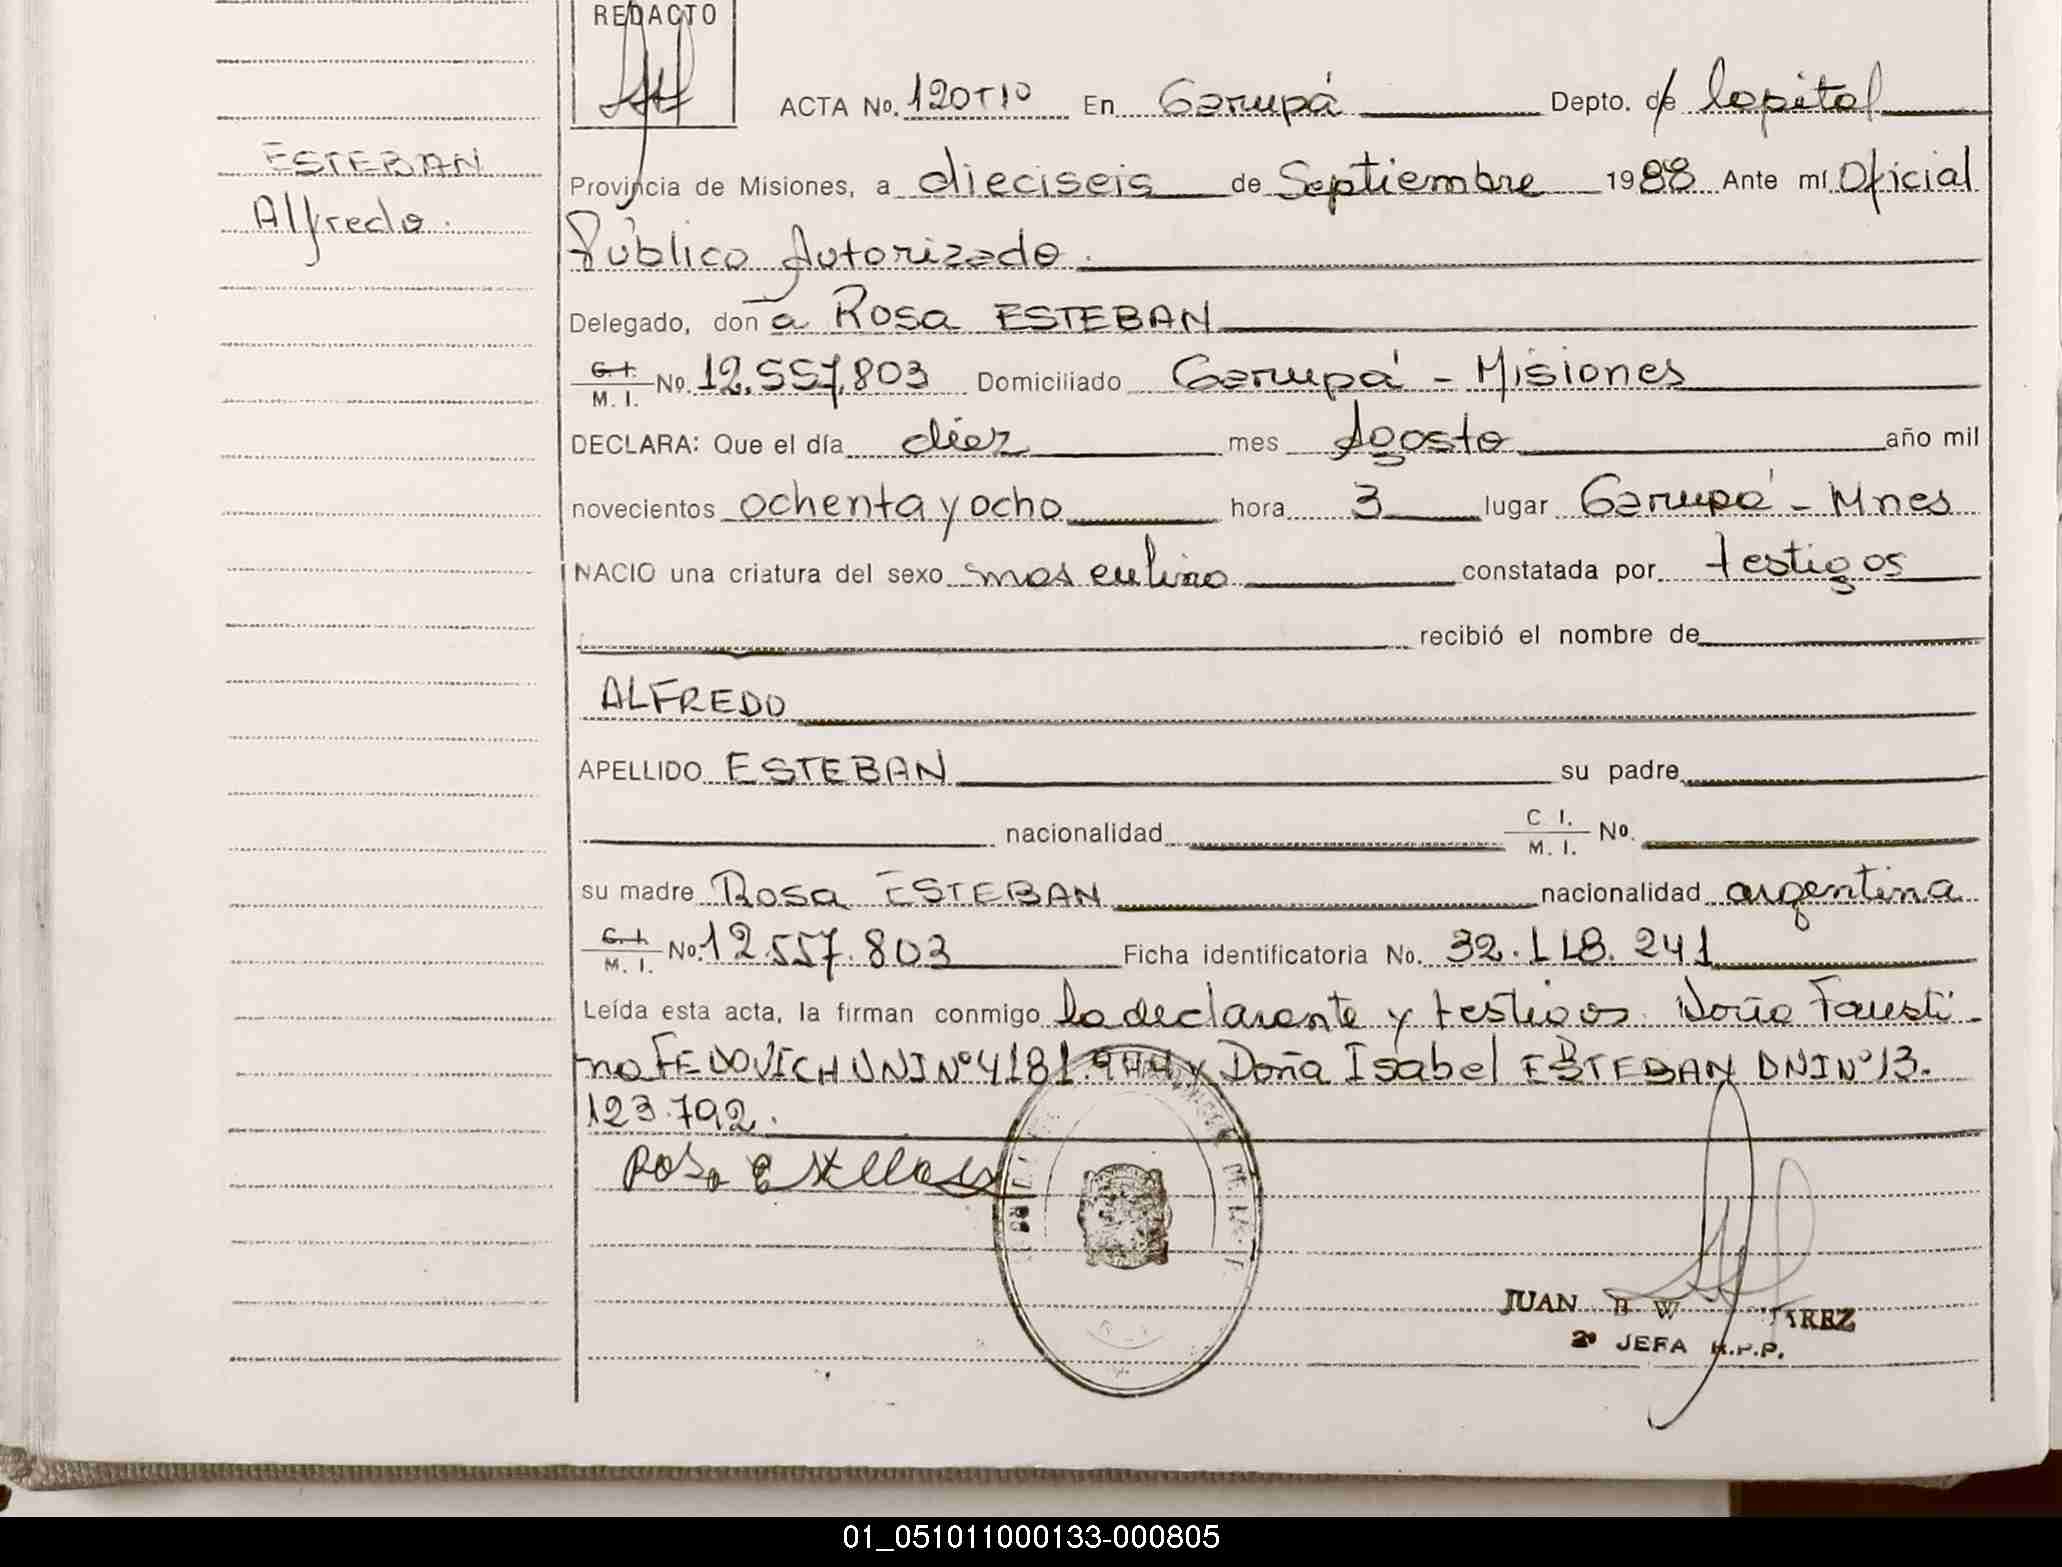 REDACTO
ACTA No. 120 T 1º En Garupá Depto. de Capital
ESTEBAN
Alfredo.
Provincia de Misiones, a dieciseis de Septiembre 1988 Ante mí Oficial
Público Autorizado.
Delegado, don a Rosa ESTEBAN
C. I. M. I. No. 12.557.803 Domiciliado Garupá - Misiones
DECLARA: Que el día diez mes Agosto año mil
novecientos ochenta y ocho hora 3 lugar Garupá - Mnes
NACIO una criatura del sexo masculino constatada por testigos
recibió el nombre de
ALFREDO
APELLIDO ESTEBAN su padre
nacionalidad C I. M. I. No.
su madre Rosa ESTEBAN nacionalidad argentina
C. I. M. I. No. 12.557.803 Ficha identificatoria No. 32.118.241
Leída esta acta, la firman conmigo la declarante y testigos. Doña Fausti-
na FEDOVICH DNI Nº 4181.944 y Doña Isabel ESTEBAN DNI Nº 13.
123.792.
Rosa Esteban
JUAN B W AREZ
2º JEFA R.P.P.
01_051011000133-000805